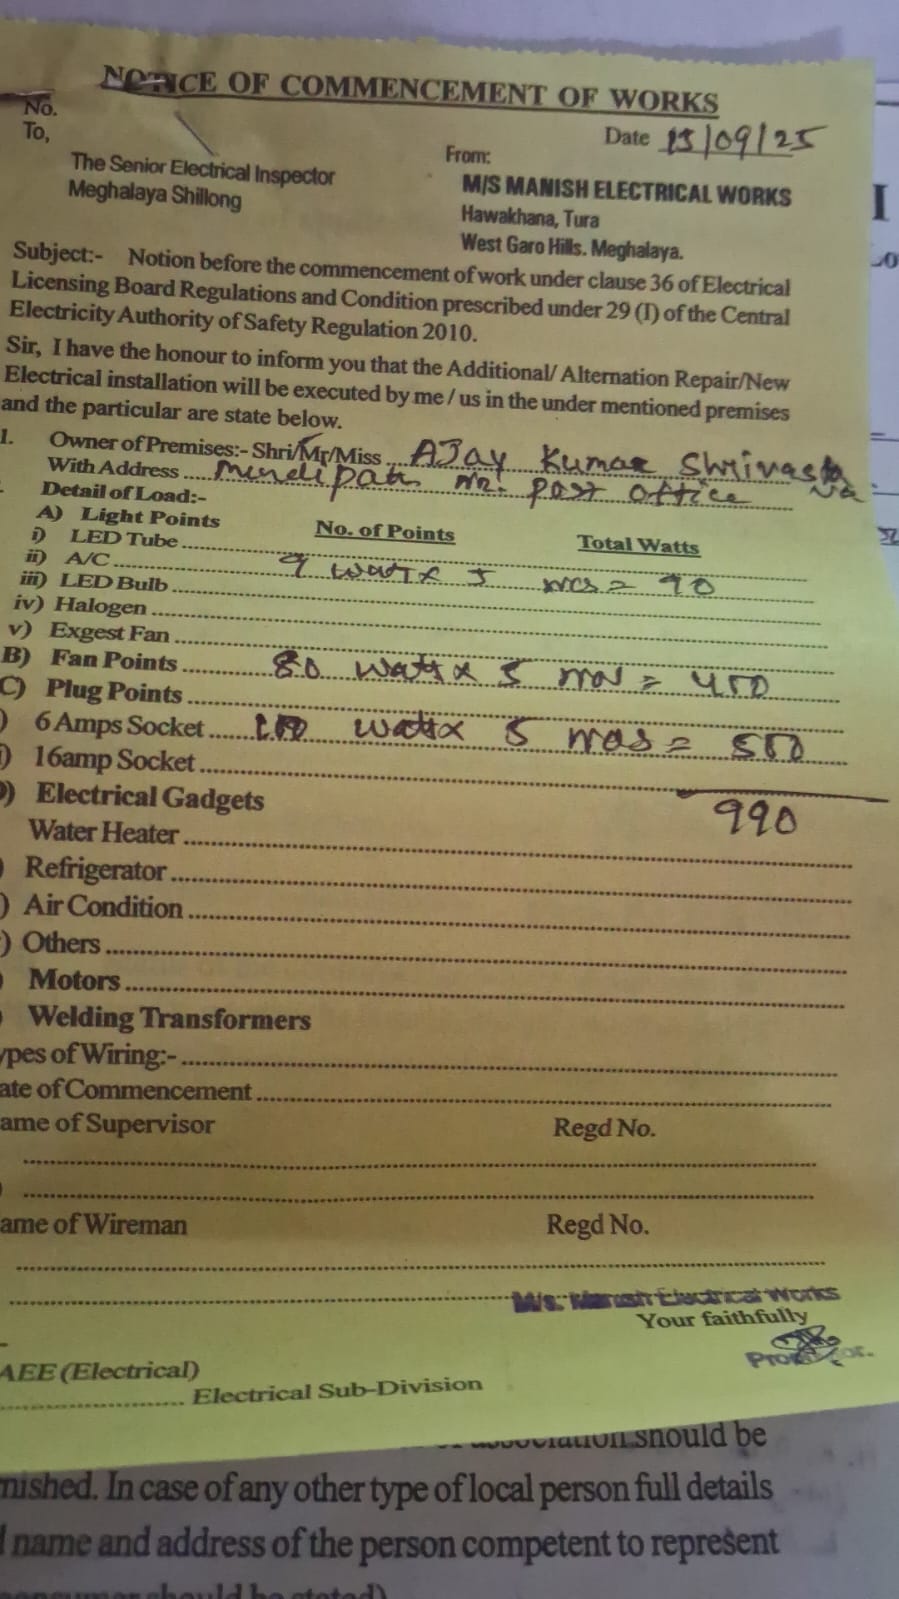 NOTICE OF COMMENCEMENT OF WORKS
No.
Date 15/09/25
To,
The Senior Electrical Inspector
Meghalaya Shillong
From:
M/S MANISH ELECTRICAL WORKS
Hawakhana, Tura
West Garo Hills. Meghalaya.
Subject:- Notion before the commencement of work under clause 36 of Electrical
Licensing Board Regulations and Condition prescribed under 29 (I) of the Central
Electricity Authority of Safety Regulation 2010.
Sir, I have the honour to inform you that the Additional/ Alternation Repair/New
Electrical installation will be executed by me / us in the under mentioned premises
and the particular are state below.
1. Owner of Premises:- Shri/Mr/Miss AJay Kumar Shrivasta
va
With Address Mendipathar nr. post office
Detail of Load:-
A) Light Points No. of Points Total Watts
i) LED Tube
ii) A/C 9 watt x 5 = 90
iii) LED Bulb
iv) Halogen
v) Exgest Fan
B) Fan Points 80 watt x 5 = 400
C) Plug Points
) 6 Amps Socket 100 watt x 5 nos = 500
) 16amp Socket
990
) Electrical Gadgets
Water Heater
) Refrigerator
) Air Condition
) Others
Motors
Welding Transformers
ypes of Wiring:-
ate of Commencement
ame of Supervisor Regd No.
ame of Wireman Regd No.
M/s. Manish Electrical Works
Your faithfully
AEE (Electrical)
Electrical Sub-Division
association should be
nished. In case of any other type of local person full details
name and address of the person competent to represent
should be stated)